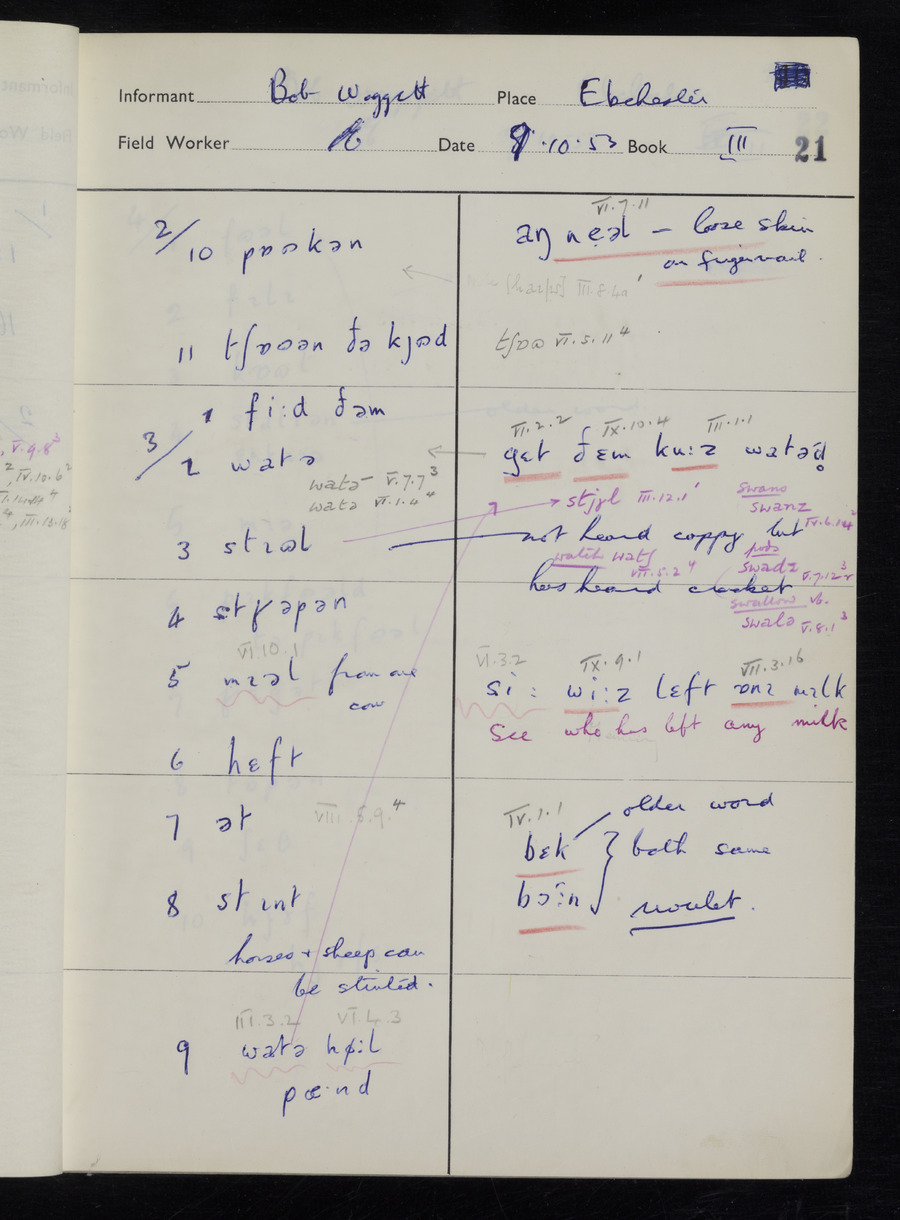 Informant Bob Waggett Place Ebchester
Field Worker Date 9.10.53 Book III 21
2/10 pɒɔkən
11 tʃɒɔən ðə kjɔd
3/1 fi:d ðəm
2 watə
watə V.7.7³
watə VI.1.4⁴
3 stɪəl
4
VI.10.1
5 mɪəl from one
cow
6 hɛft
7 ət VIII.8.9.⁴
8 stɪnt
horses + sheep can
be stinted.
III.3.2 VI.4.3
9 watə hø:l
pœ·nd
VI.7.11
aŋ neəl – loose skin
on fingernail.
III.8.40
tʃɒɔ VI.5.11⁴
VI.2.2 IX.10.4 III.1.1
gɛt ðɛm ku:z watəd
III.12.1¹ swans
swanz
IV.6.14²
not heard coppy but
watch watʃ pods
VII.5.2⁴ swadz V.7.12³
has heard cracket
swallow vb.
swalə V.8.1³
VI.3.2 IX.9.1 VII.3.16
si: wi:z lɛft ɒnɪ mɪlk
See who has left any milk
IV.1.1 older word
bɛk } both same
bɔ:n
V.9.8³
IV.10.6²
III.13.18